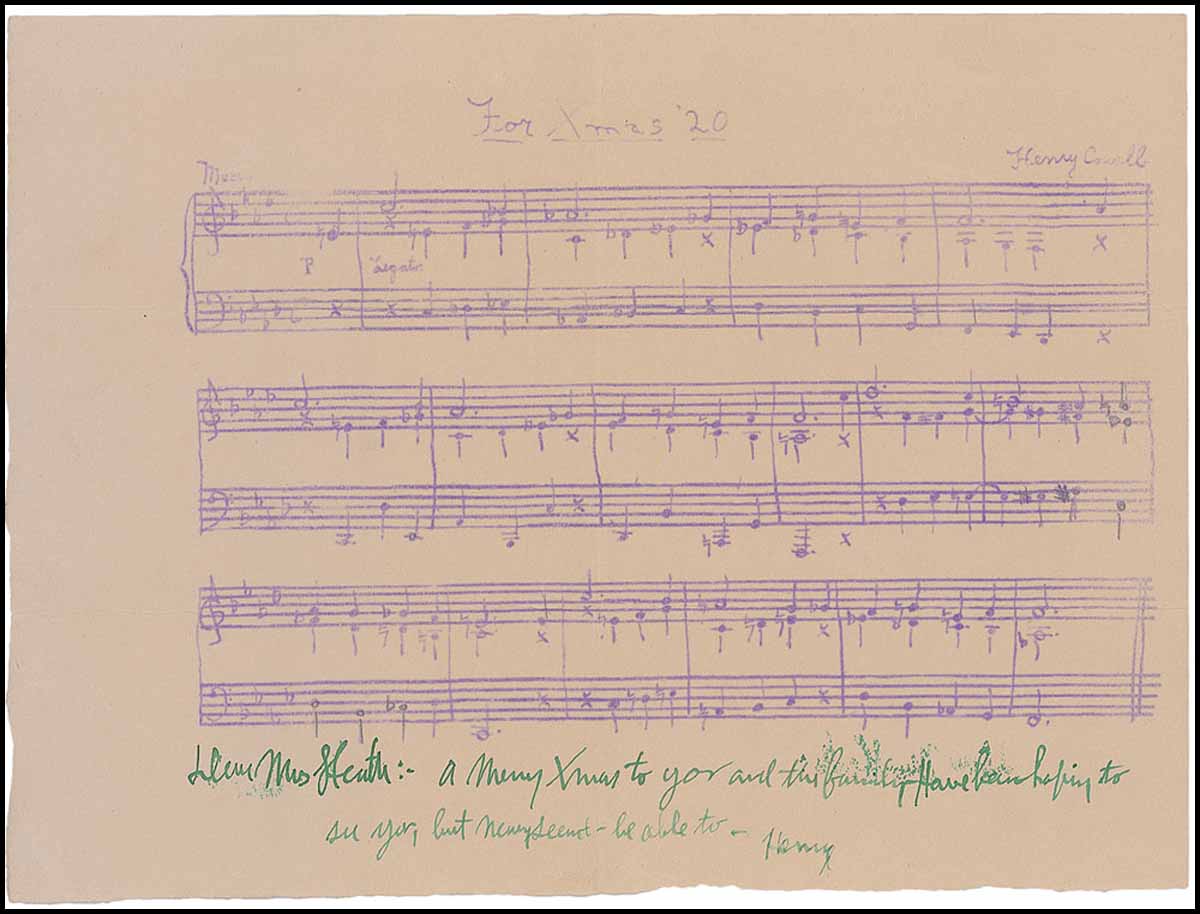 For Xmas '20
Henry Cowell
P
Legato
Dear Mrs Heath:- A Merry Xmas to you and the family. Have been hoping to
see you, but never seem to be able to - Henry